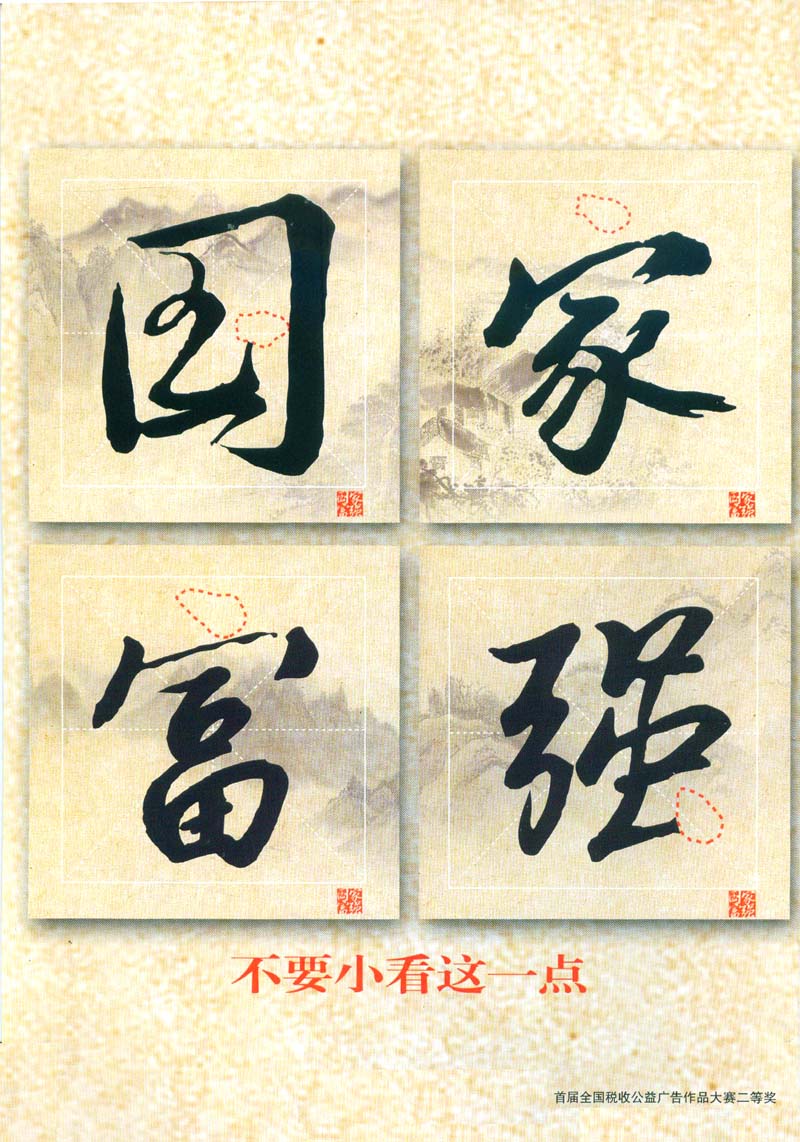 国家
富强
不要小看这一点
首届全国税收公益广告作品大赛二等奖